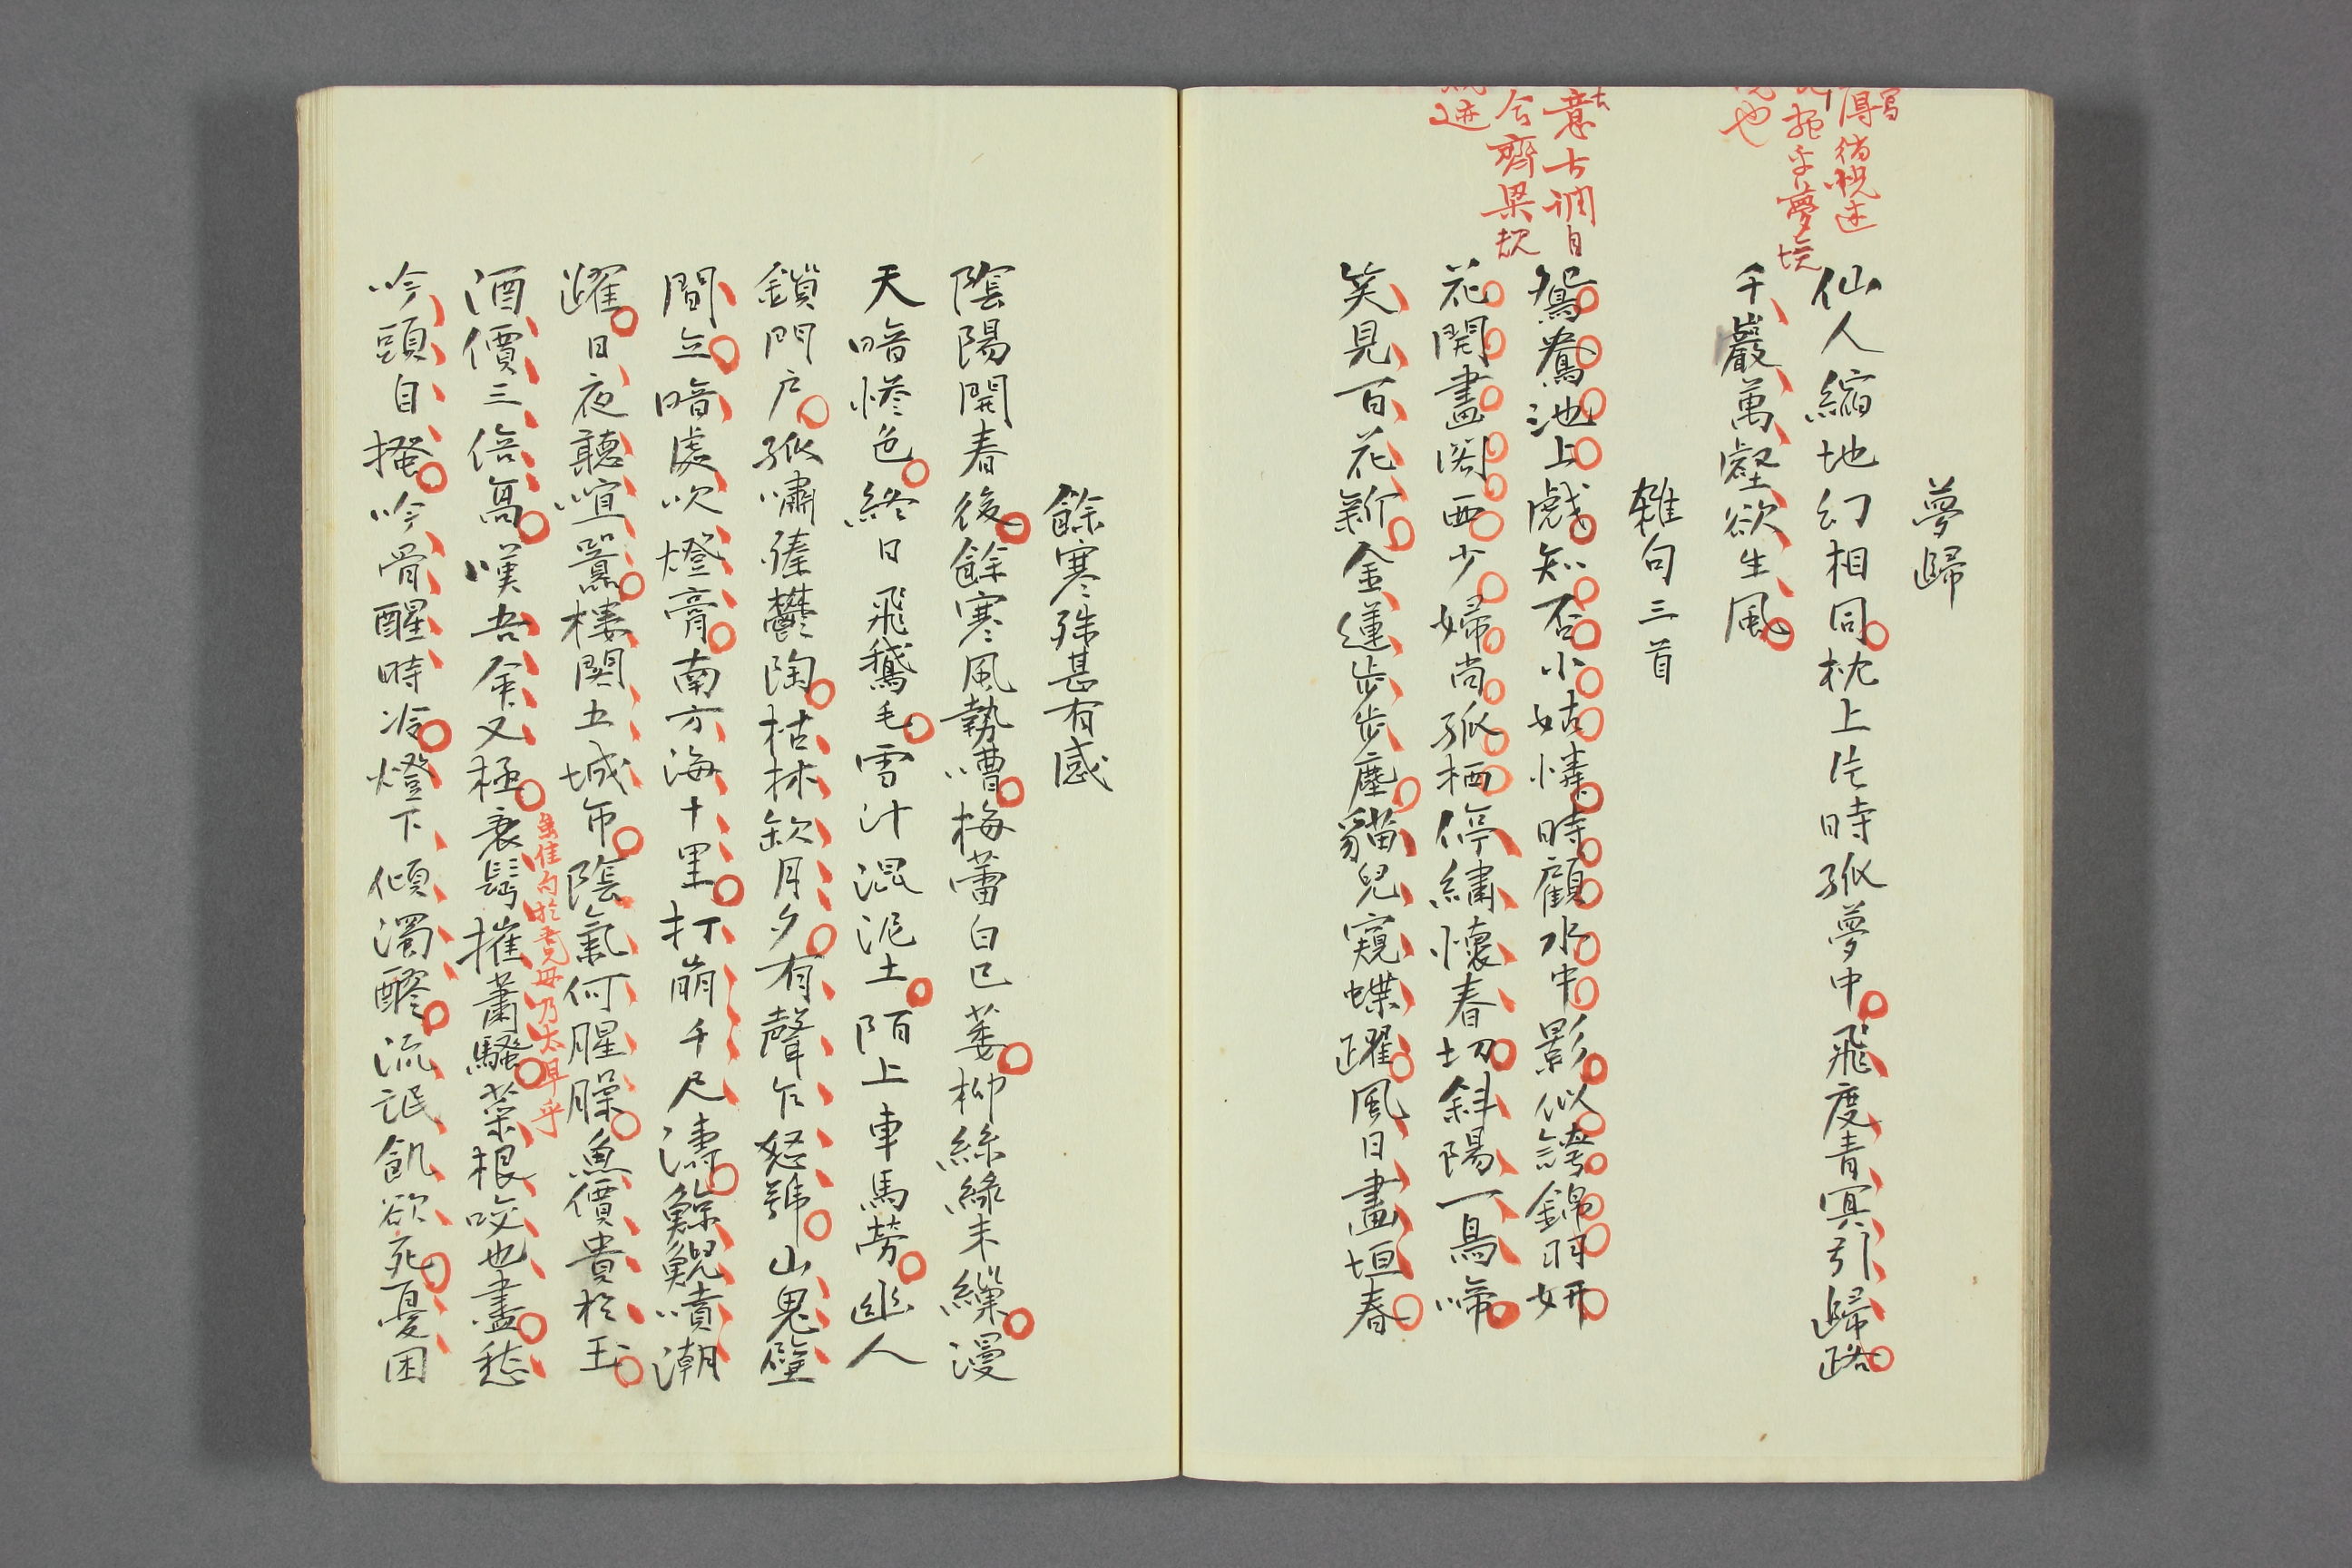 夢歸
仙人縮地幻相同枕上片時孤夢中飛度青冥引歸路
千巖萬壑欲生風
雜句三首
鴛鴦池上戲知否小姑憐時顧水中影似誇錦羽妍
花開畫閣西少婦尚孤栖停繡懷春切斜陽一鳥啼
笑見百花新金蓮步步塵貓兒窺蝶躍風日畫垣春
意古調自
合齊梁
迹
得髣髴述
乎夢境
也
餘寒殊甚有感
陰陽開春後餘寒風勢嘈梅蕾白已萎柳絲綠未繅漫
天暗慘色終日飛鵞毛雪汁混泥土陌上車馬勞幽人
鎖門戶孤嘯獨鬱陶枯林欽月夕有聲乍怒號山鬼壁
間立暗處吹燈膏南方海十里打崩千尺濤鯨鯢噴潮
躍日夜聽喧囂樓閣五城市陰氣何腥臊魚價貴於玉
酒價三倍高嘆吾年又極衰髩摧蕭騷菜根咬也盡愁
佳句於吾兄毋乃太早乎
吟頭自搔吟骨醒時冷燈下傾濁醪流氓飢欲死憂困